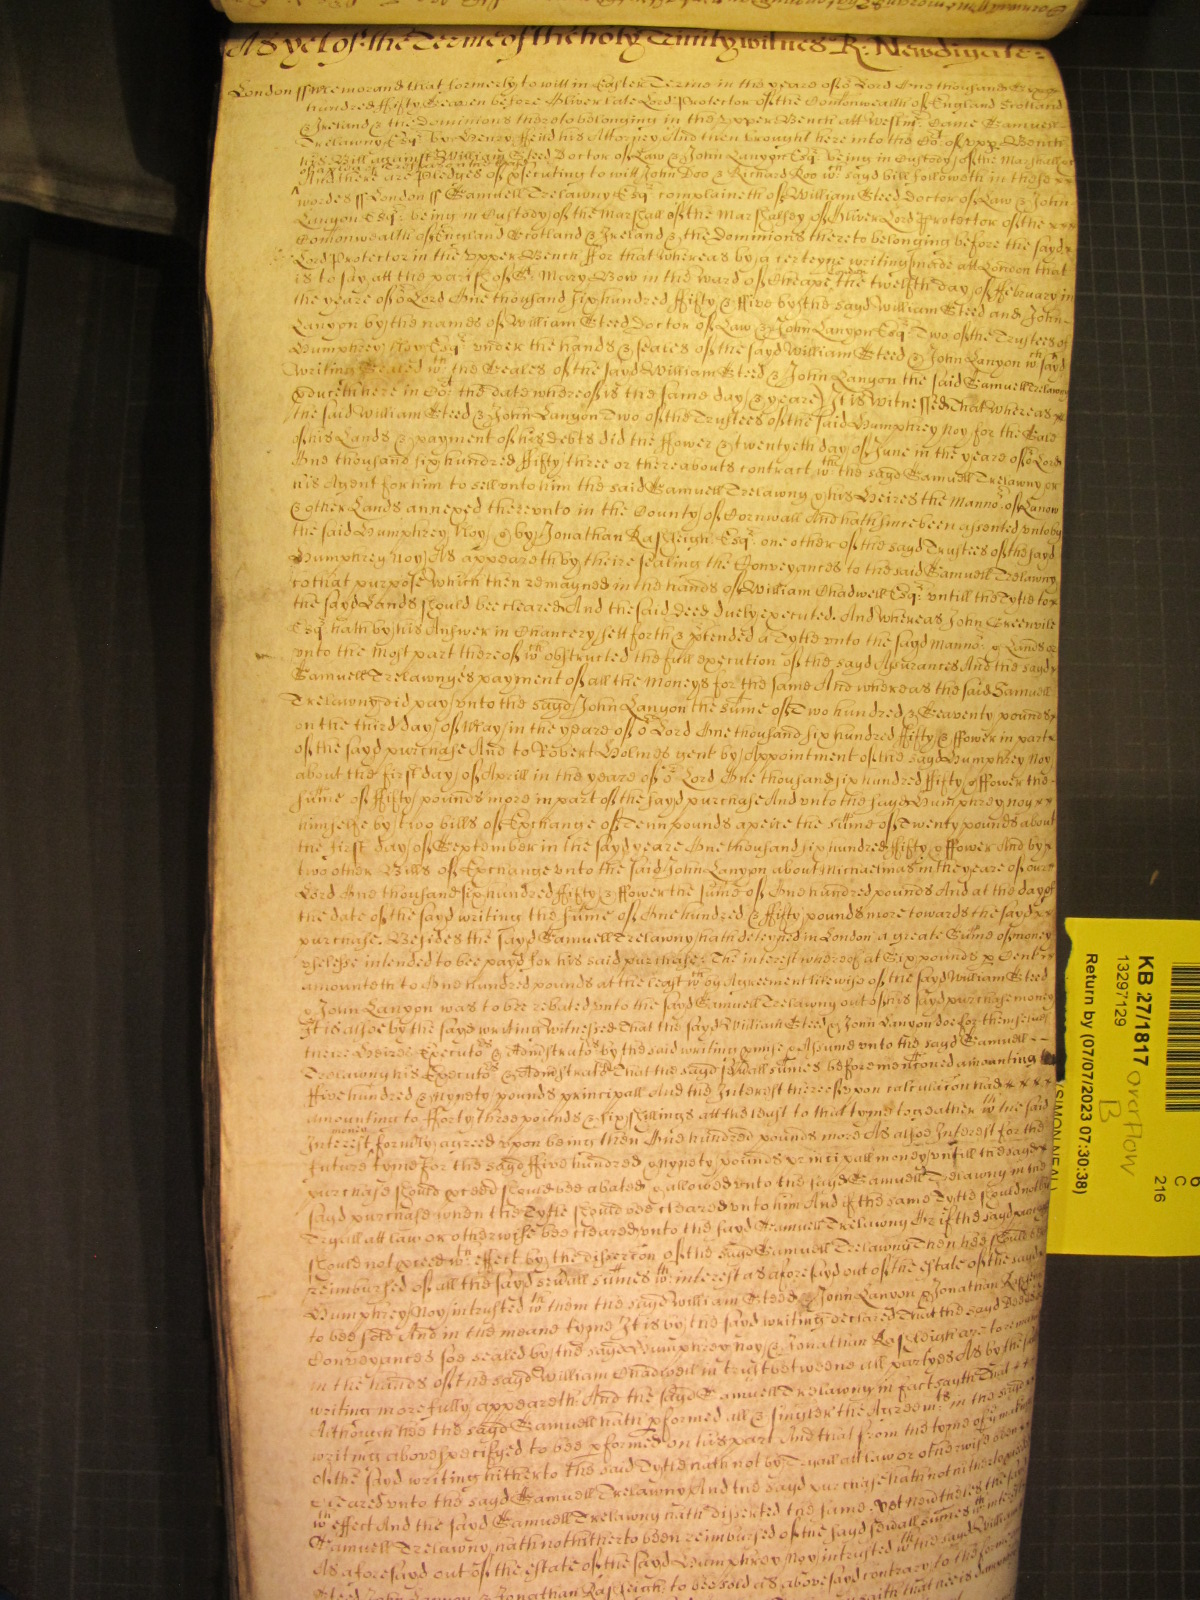 As yet of the Terme of the holy Trinity witnes R: Newdigate:
London ss Memorand that formerly to witt in Easter Terme in the yeare of or Lord One thousand six
hundred ffifty Seaven before Oliver late Lord Protector of the Comonwealth of England Scotland
& Ireland & the Dominions thereto belonging in the Upper Bench att Westmr Came Samuell
Trelawny Esqr by Henry ffeild his Attorney And then brought here into the Cot of upper Bench
his Bill against William Steed Doctor of Law & John Lanyon Esqr being in Custody of the Marshall
And there are Pledges of prsecuting to witt John Doo & Richard Roo wch sayd bill followeth in these
words ss London ss Samuell Trelawny Esqr complaineth of William Steed Doctor of Law & John
Lanyon Esqr: being in Custody of the Marshall of the Marshalsey of Oliver Lord Protector of the
Comonwealth of England Scotland & Ireland & the Dominions thereto belonging before the sayd
Lord Protector in the Upper Bench ffor that whereas by a certeyne writing made att London that
is to say att the parish of St Mary Bow in the ward of Cheape the twelfth day of ffebruary in
the yeare of or Lord One thousand six hundred ffifty & ffive by the sayd William Steed and John
Lanyon by the names of William Steed Doctor of Law & John Lanyon Esqr Two of the Trustees of
Humphrey Noy Esqr under the hands & seales of the sayd William Steed & John Lanyon wch sayd
writing Sealed wth the Seales of the sayd William Steed & John Lanyon the said Samuell Trelawny
pduceth here in Cot the date whereof is the same day & yeare) It is Witnessed That Whereas
the said William Steed & John Lanyon Two of the Trustees of the said Humphrey Noy for the Sale
of his Lands & payment of his debts did the ffower & twentyeth day of June in the yeare of or Lord
One thousand six hundred ffifty three or thereabouts contract wth the sayd Samuell Trelawny or
his Agent for him to sell unto him the said Samuell Trelawny & his Heires the Mannor of Lanow
& other Lands annexed thereunto in the County of Cornwall And hath since been assented unto by
the said Humphrey Noy & by Jonathan Rashleigh Esqr: one other of the sayd Trustees of the sayd
Humphrey Noy As appeareth by theire sealing the Conveyances to the said Samuell Trelawny
to that purpose which then remayned in the hands of William Chadwell Esqr: untill the Tytle to
the sayd Lands should bee cleared And the said deed duely executed. And whereas John Greenvile
Esqr hath by his Answer in Chancery sett forth & ptended a Tytle unto the sayd Mannor & Lands or
unto the most part thereof wch obstructed the full execution of the sayd Assurances And the sayd
Samuell Trelawnyes payment of all the Moneys for the same And whereas the said Samuell
Trelawny did pay unto the sayd John Lanyon the sume of Two hundred & Seaventy pounds
on the third day of May in the yeare of or Lord One thousand six hundred ffifty & ffower in part
of the sayd purchase And to Robert Holmes gent by Appointment of the sayd Humphrey Noy
about the first day of Aprill in the yeare of or Lord One thousand six hundred ffifty & ffower the
sume of ffifty pounds more in part of the sayd purchase And unto the sayd Humphrey Noy
himselfe by two bills of Exchange of Tenn pounds apeice the sume of Twenty pounds about
the first day of September in the sayd yeare One thousand six hundred ffifty & ffower And by
two other Bills of Exchange unto the said John Lanyon about Michaelmas in the yeare of our
Lord One thousand six hundred ffifty & ffower the sume of One hundred pounds And at the day of
the date of the sayd writing the sume of One hundred & ffifty pounds more towards the sayd
purchase. Besides the sayd Samuell Trelawny hath deteyned in London a great Sume of money
uselesse intended to bee payd for his said purchase: The interest whereof at Six pounds p Cent
amounteth to One hundred pounds at the least wch by Agreement likewise of the sayd William Steed
& John Lanyon was to bee rebated unto the sayd Samuell Trelawny out of his sayd purchase money
It is alsoe by the sayd writing Witnessed That the sayd William Steed & John Lanyon doe for themselves
there Heires Executors & Administrators by the said writing pmise & Assume unto the sayd Samuell
Trelawny his Executors & Administrators That the sayd sevall sumes before mencioned amounting to
ffive hundred & Nynety pounds principall And the Interest thereof upon calculacon had
amounting to fforty three pounds & six shillings att the least to that tyme togeather wth the said
Interest money formerly agreed upon being then One hundred pounds more As alsoe Interest for the
future tyme for the sayd ffive hundred & Nynety pounds principall money untill the sayd
purchase should pceed should bee abated & allowed unto the sayd Samuell Trelawny in the
sayd purchase when the Tytle should bee cleared unto him And if the same Tytle should not by
Tryall att law or otherwise bee cleared unto the sayd Samuell Trelawny Or if the sayd purchase
should not pceed wth effect by the discretion of the sayd Samuell Trelawny Then hee should bee
reimbursed of all the sayd sevall sumes wth interest as aforesayd out of the estate of the sayd
Humphrey Noy intrusted wth them the sayd William Steed & John Lanyon & Jonathan Rashleigh
to bee sold And in the meane tyme It is by the sayd writing declared That the sayd Deedes &
Conveyances soe sealed by the sayd Humphrey Noy & Jonathan Rashleigh are to remaine
in the hands of the sayd William Chadwell in trust betweene all partyes As by the said
writing more fully appeareth And the sayd Samuell Trelawny in fact sayth That
Although hee the sayd Samuell hath pformed all & singler the Agreemts in the sayd
writing above specifyed to bee pformed on his part And that from the tyme of ye making
of the sayd writing hitherto the said Tytle hath not by Tryall att law or otherwise been
cleared unto the sayd Samuell Trelawny And the sayd purchase hath not hitherto pceeded
wth effect And the sayd Samuell Trelawny hath diserted the same. Yet nevertheles the sayd
Samuell Trelawny hath not hitherto been reimbursed of the sayd sevall sumes wth interest
As aforesayd out of the estate of the sayd Humphrey Noy intrusted wth the sayd William
Steed John Lanyon & Jonathan Rashleigh to bee sold as abovesayd contrary to the forme
KB 27/1817 overflow
B
13297129
Return by (07/07/2023 07:30:38)
(SIMON NEAL)
6
C
216